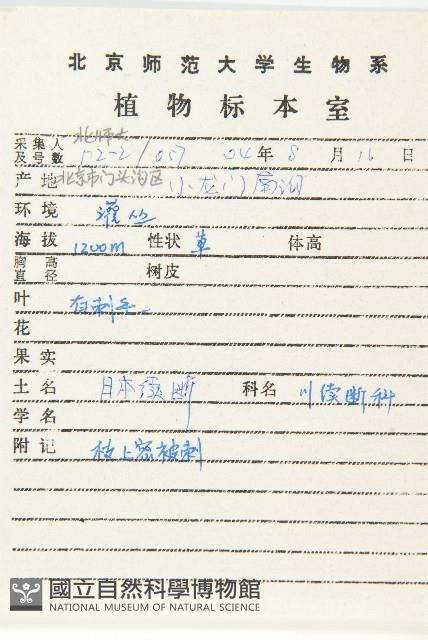 北京师范大学生物系
植物标本室
采集人及号数 北师大 057 04年8月16日
产地 北京市门头沟区小龙门南沟
环境 灌丛
海拔 1200m 性状 草 体高
胸高直径 树皮
叶 有刺毛
花
果实
土名 日本续断 科名 川续断科
学名
附记 枝上密被刺
國立自然科學博物館
NATIONAL MUSEUM OF NATURAL SCIENCE